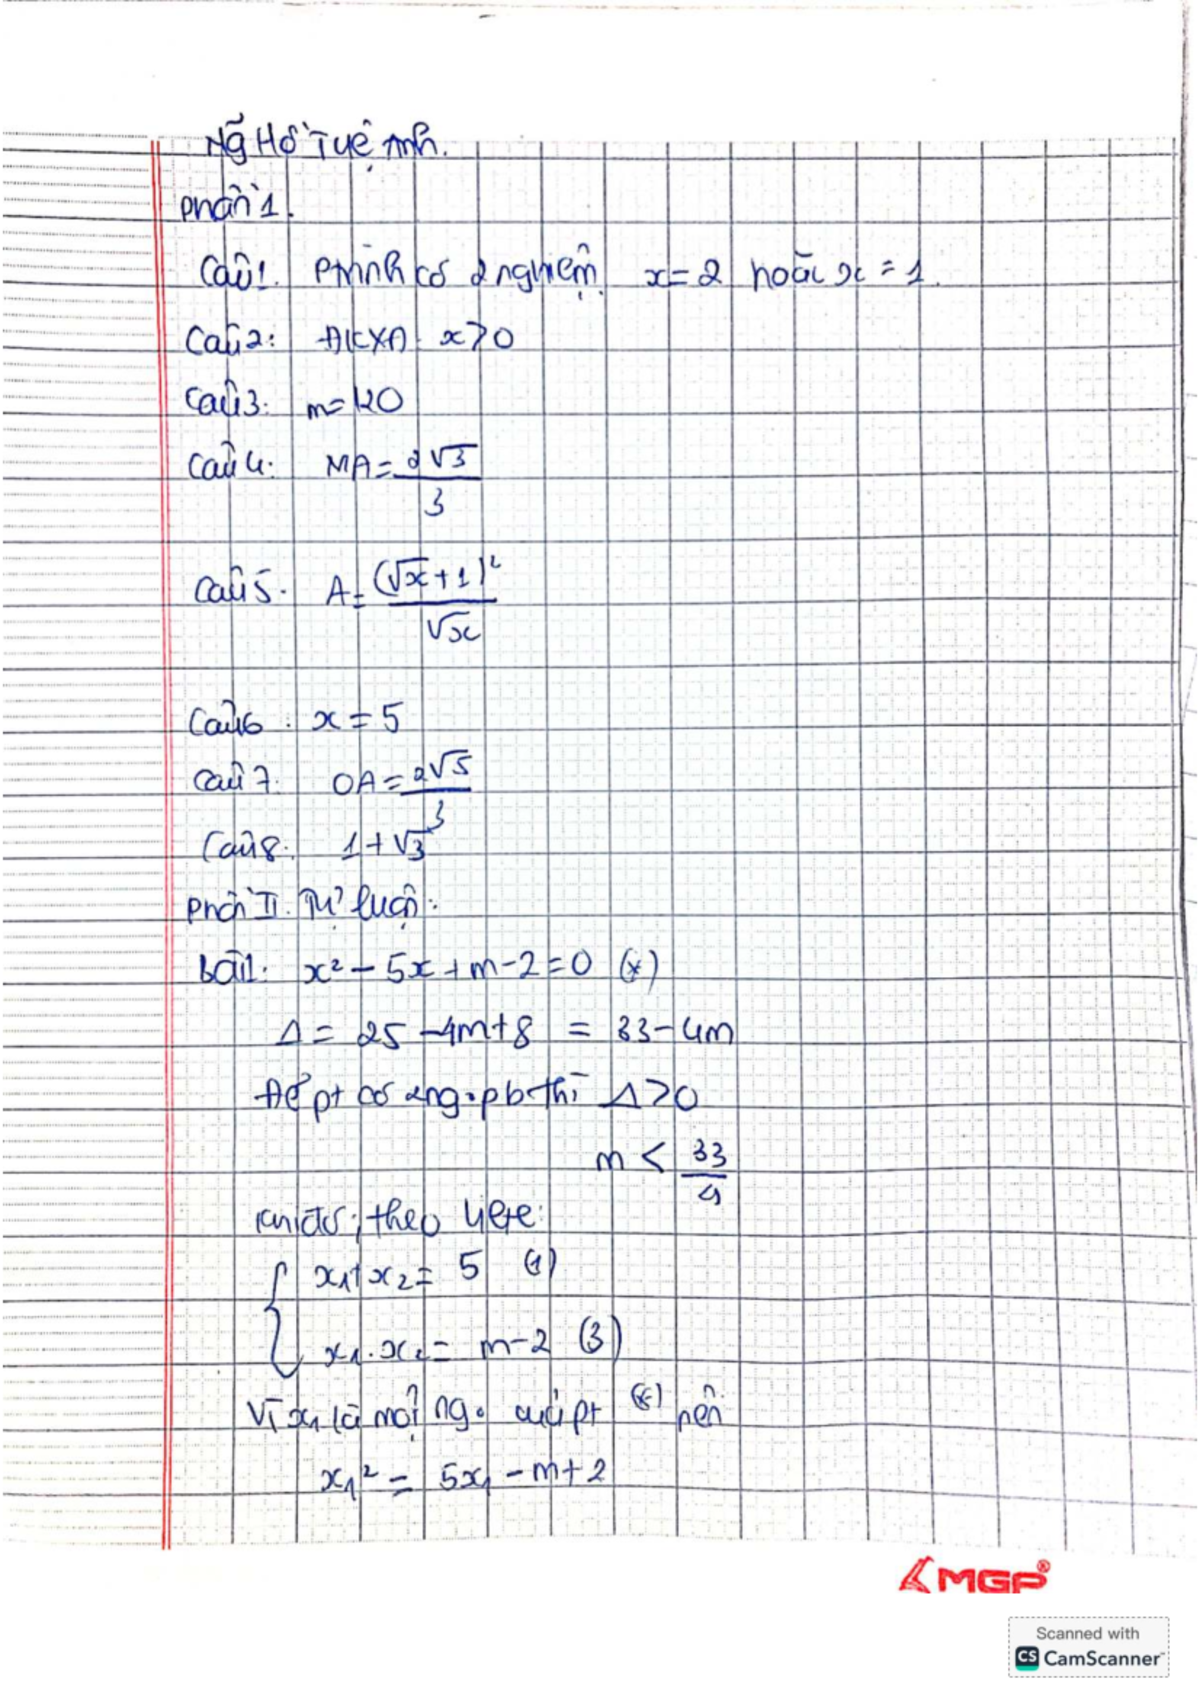 Ng Hồ Tuệ Anh.
phần 1.
Câu 1. Ptrình có 2 nghiệm x=2 hoặc x=1.
Câu 2: ĐKXĐ: x>0
Câu 3: m=120
Câu 4: MA= 2√3/3
Câu 5. A= (√x+1)²/√x
Câu 6: x=5
Câu 7. OA= 2√5/3
Câu 8: 1+√3
Phần II. Tự luận:
bài 1: x² - 5x + m-2=0 (*)
Δ= 25 -4m+8 = 33-4m
Để pt có 2ng.pb thì Δ>0
m < 33/4
Khi đó, theo Viète:
{ x₁+x₂= 5 (1)
x₁.x₂= m-2 (3)
Vì x₁ là một ng. của pt (*) nên
x₁² = 5x₁ -m+2
MGP®
Scanned with
CS CamScanner